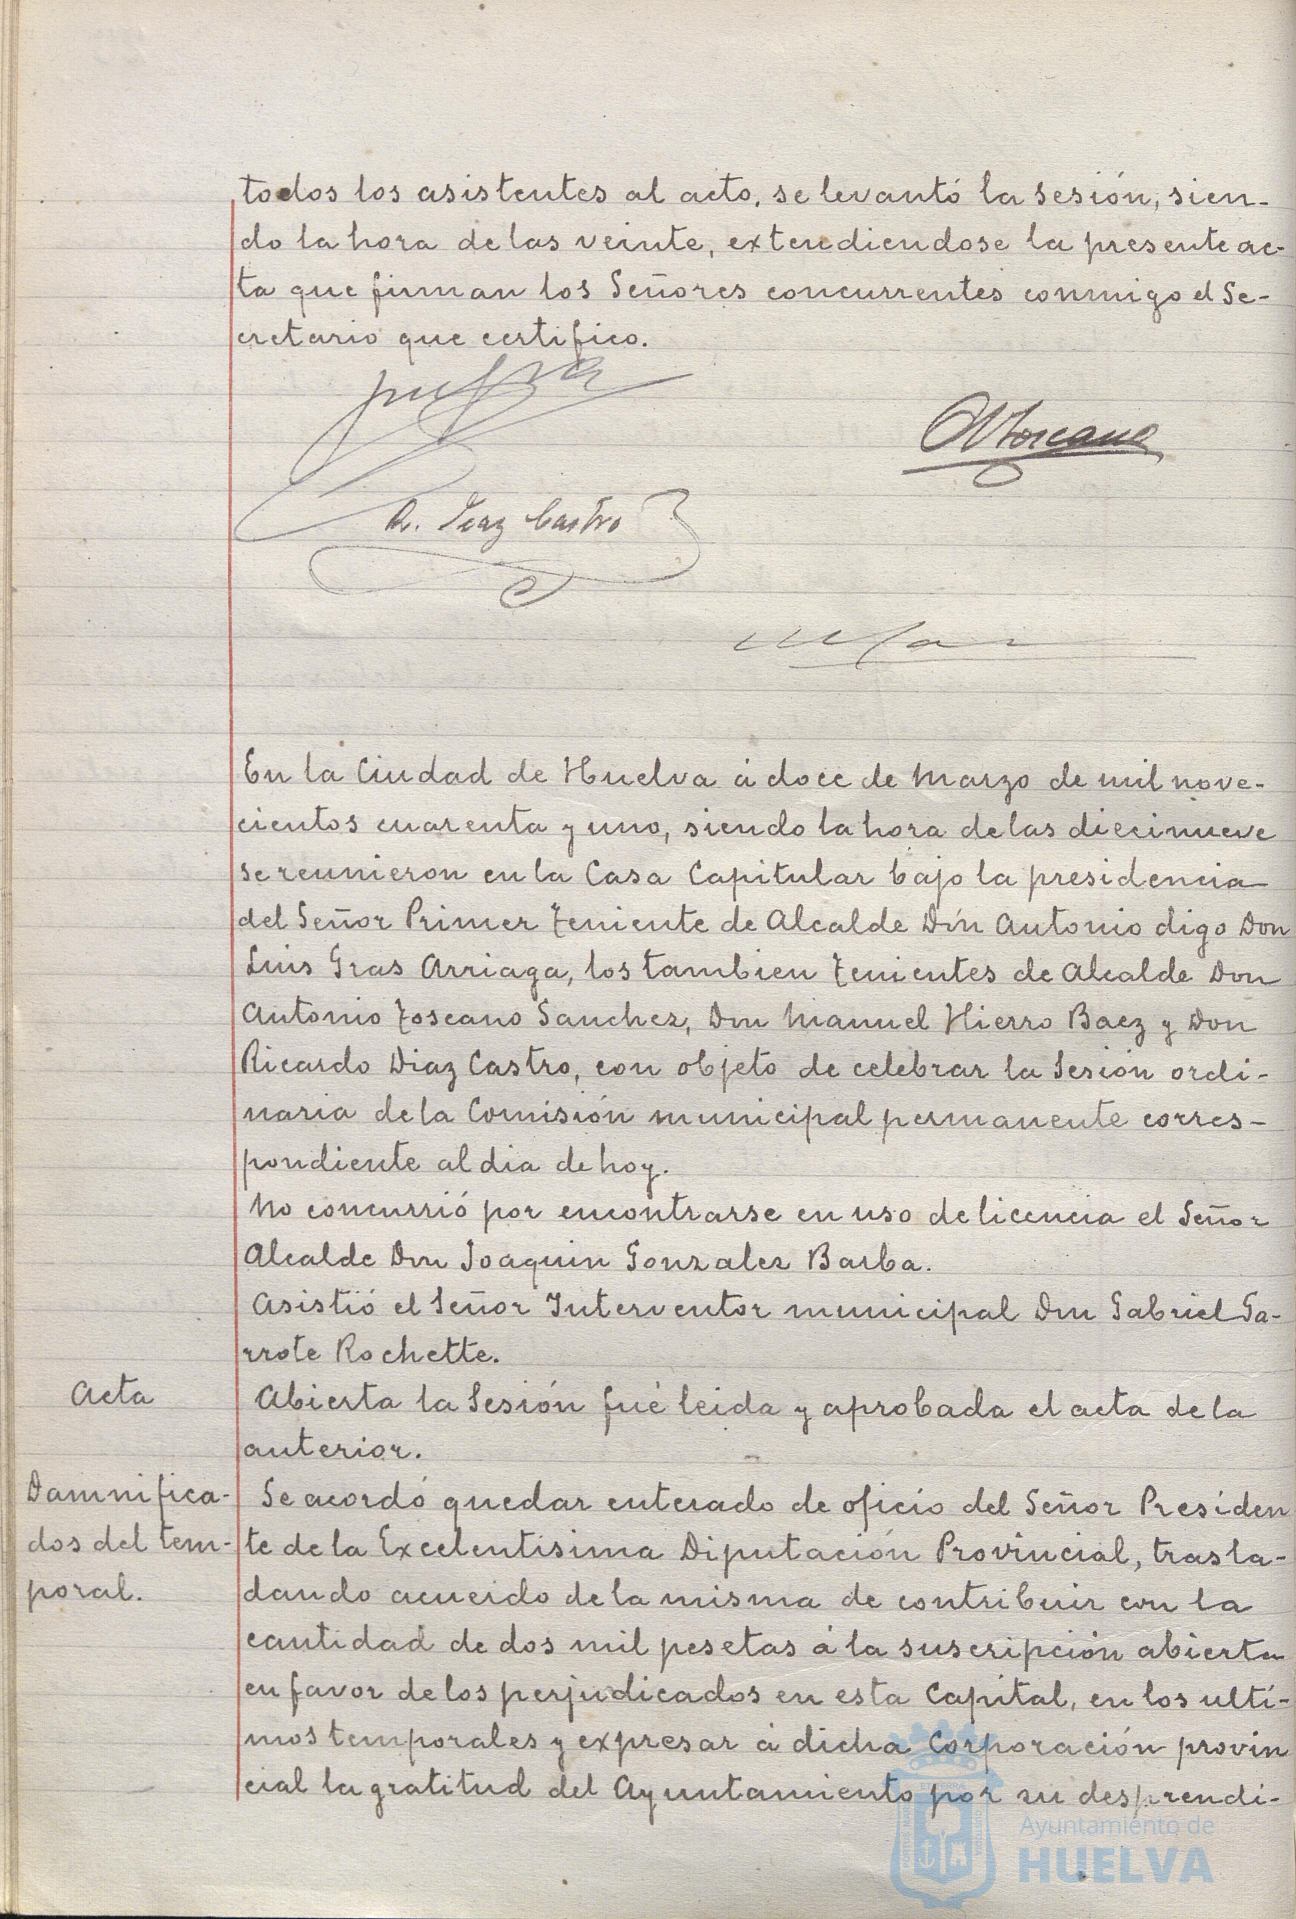 todos los asistentes al acto, se levantó la Sesión, sien-
do la hora de las veinte, extendiendose la presente ac-
ta que firman los Señores concurrentes conmigo el Se-
cretario que certifico.
A Toscano
R. Diaz Castro
En la Ciudad de Huelva á doce de Marzo de mil nove-
cientos cuarenta y uno, siendo la hora de las diecinueve
se reunieron en la Casa Capitular bajo la presidencia
del Señor Primer Teniente de Alcalde Don Antonio digo Don
Luis Gras Arriaga, los tambien Tenientes de Alcalde Don
Antonio Toscano Sanchez, Don Manuel Hierro Baez y Don
Ricardo Diaz Castro, con objeto de celebrar la Sesión ordi-
naria de la Comisión municipal permanente corres-
pondiente al dia de hoy.
No concurrió por encontrarse en uso de licencia el Señor
Alcalde Don Joaquin Gonzalez Barba.
Asistió el Señor Interventor municipal Don Gabriel Ga-
rrote Rochette.
Acta
Abierta la Sesión fué leida y aprobada el acta de la
anterior.
Damnifica-
dos del tem-
poral.
Se acordó quedar enterado de oficio del Señor Presiden
te de la Excelentisima Diputación Provincial, trasla-
dando acuerdo de la misma de contribuir con la
cantidad de dos mil pesetas á la suscripción abierta
en favor de los perjudicados en esta Capital, en los ulti-
mos temporales y expresar á dicha Corporación provin
cial la gratitud del Ayuntamiento por su desprendi-
Ayuntamiento de
HUELVA